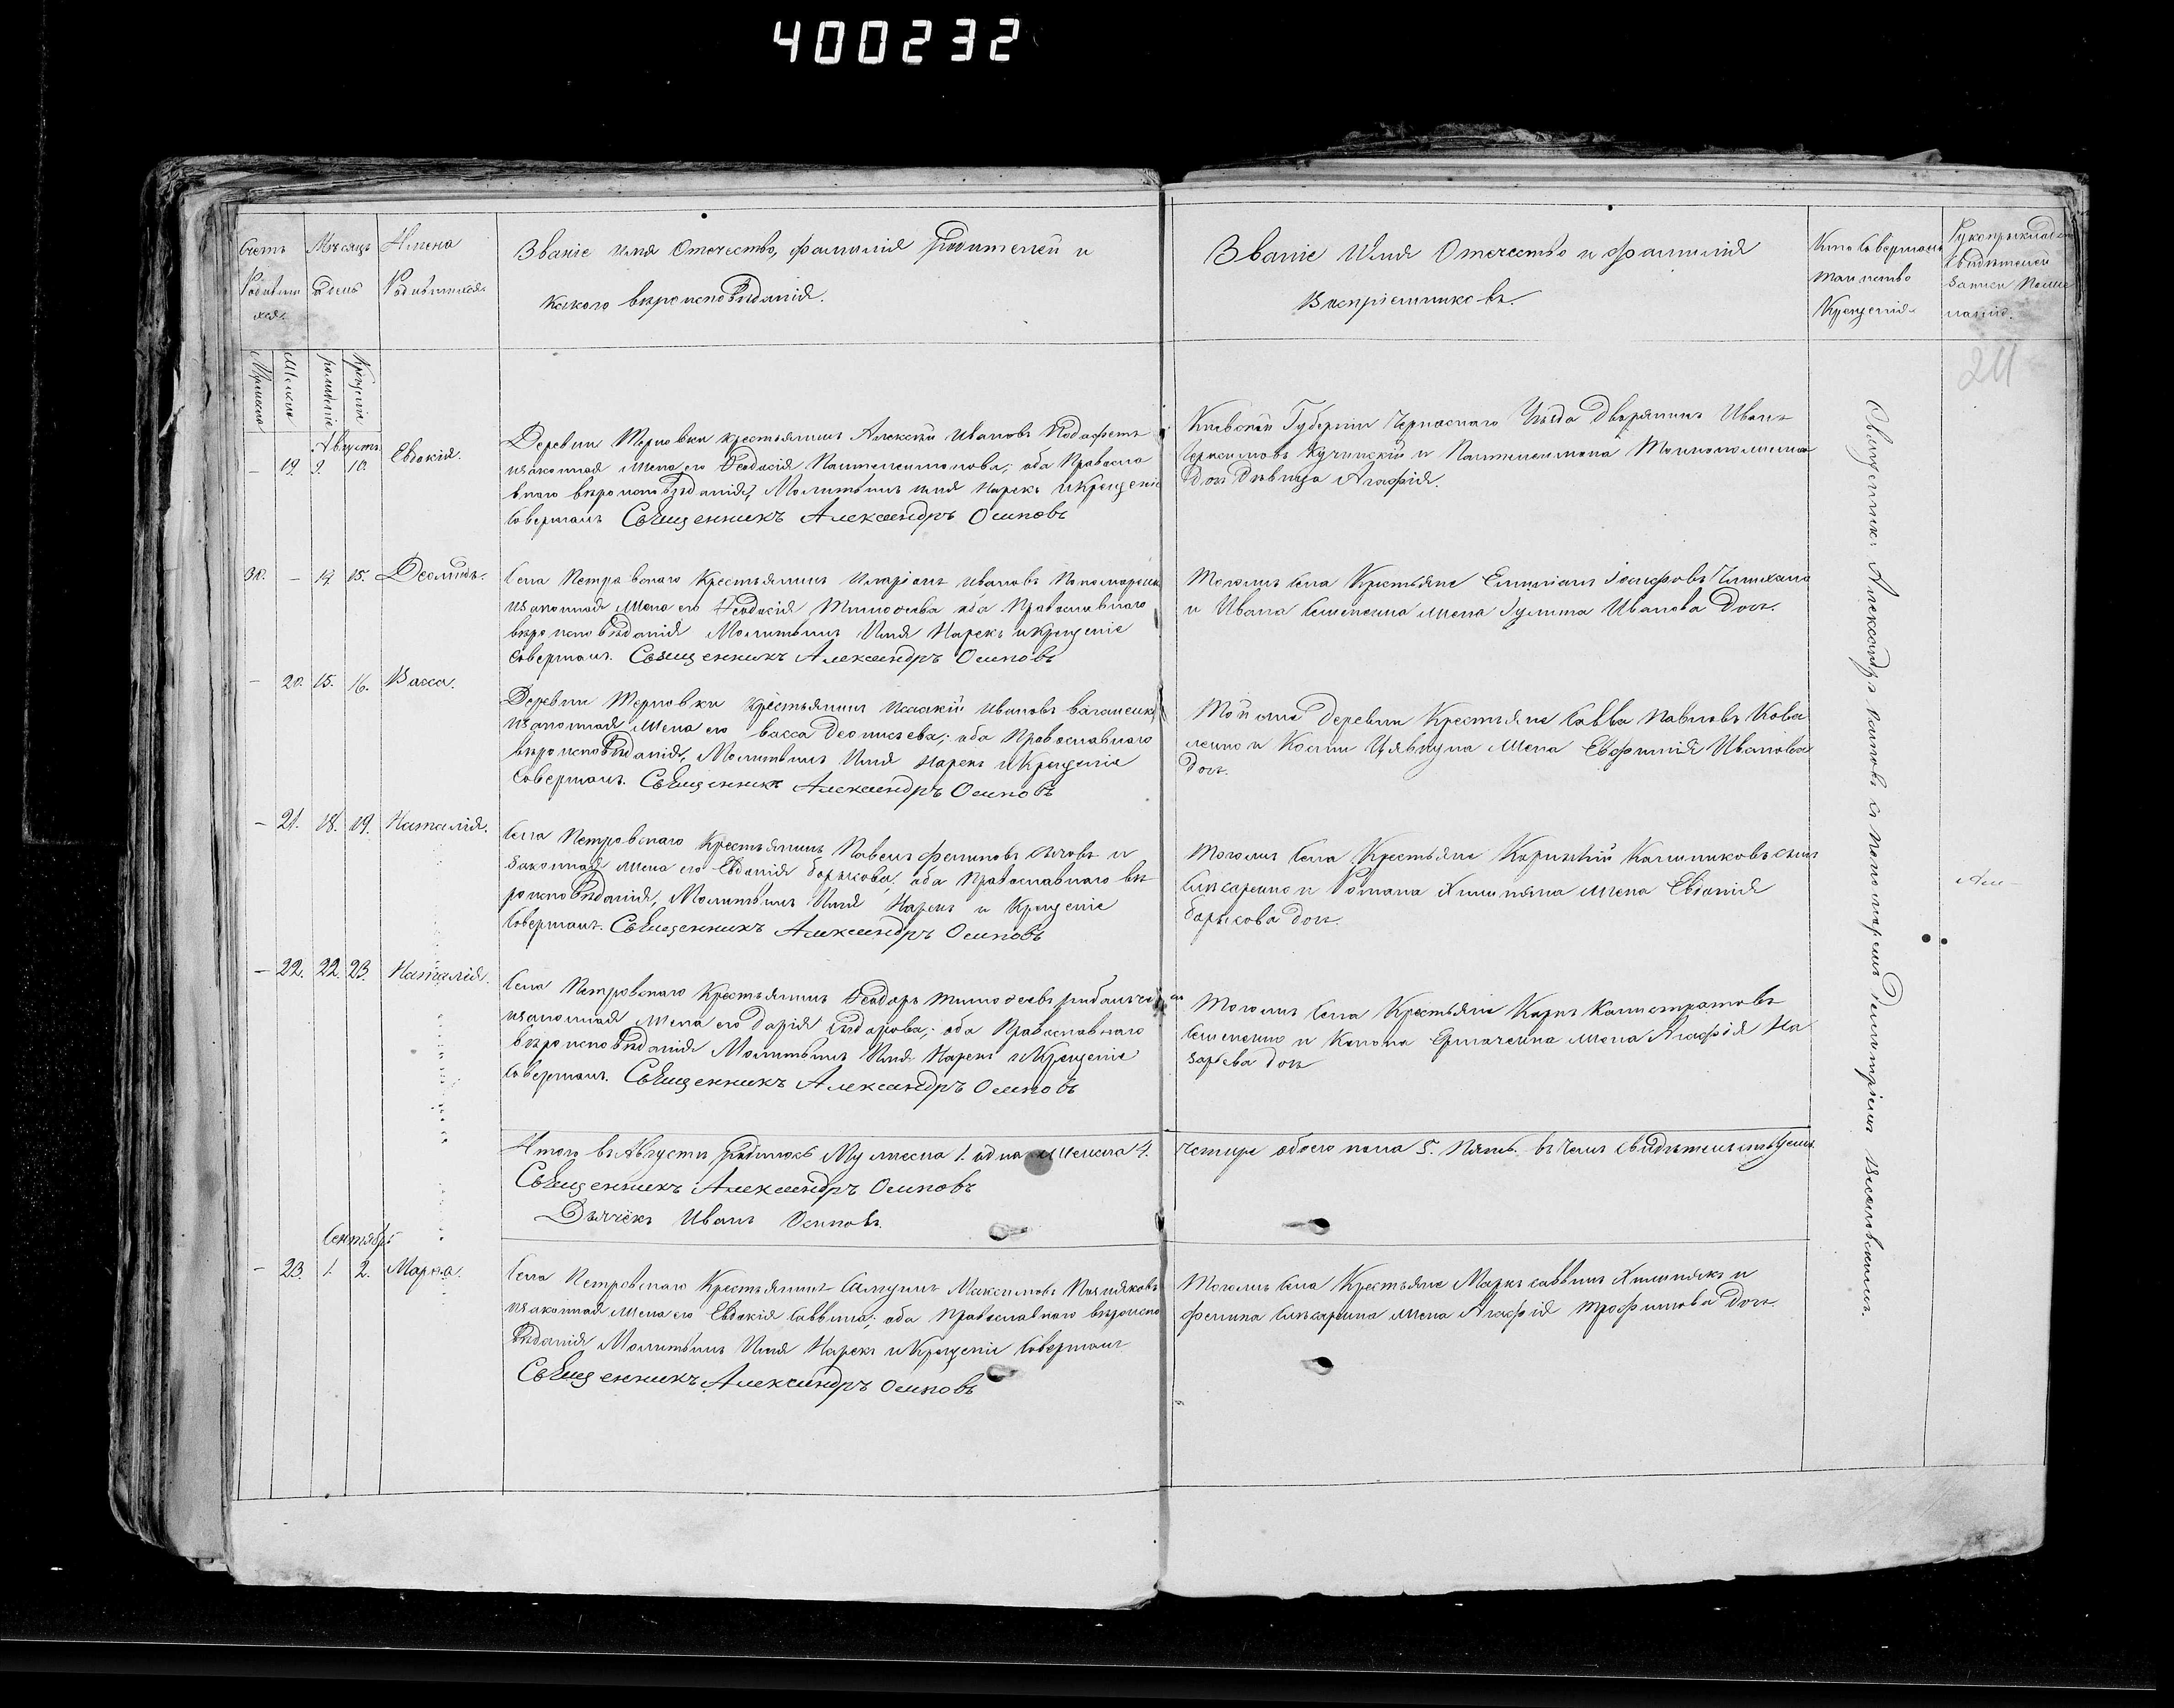 400232
Счетъ
Родивши
хся.
Мѣсяцъ
и день
Имена
Родившихся.
Званіе имя Отчество, фамилія Родителей и
какого вѣроисповѣданія.
Званіе Имя Отчество и фамилія
Воспріемниковъ.
Кто Совершалъ
таинство
Крещенія
Рукоприклад
Свидѣтелей
записи
211
Мужеска
Женска
рожденіе
Крещеніе
Августъ
— 19 9. 10. Евдокія.
Деревни Терновки крестьянинъ Алексѣй Ивановъ
и законная жена его Феодосія Пантелеимонова, оба Правосла
внаго вѣроисповѣданія, Молитвилъ имя Нарекъ и Крещеніе
Совершалъ Священникъ Александръ Осиповъ
Кіевской Губерніи Черкаскаго Уѣзда Дворянинъ Иванъ
и Пантелеимона
Дочь Дѣвица Агафія.
30. — 14 15. Деомидъ.
Села Петровскаго Крестьянинъ Иларіонъ Ивановъ Пономаренко
и законная жена его Феодосія Тимофеева оба Православнаго
вѣроисповѣданія Молитвилъ Имя Нарекъ и Крещеніе
Совершалъ. Священникъ Александръ Осиповъ
Тогожъ Села Крестьяне Емиліанъ Іосифовъ
и Ивана Семенена жена Гулита Иванова Дочь.
— 20. 15. 16. Васса.
Деревни Терновки крестьянинъ Исаакій Ивановъ
и законная жена его Васса Деонисьева; оба Православнаго
вѣроисповѣданія, Молитвилъ Имя Нарекъ и Крещеніе
Совершалъ. Священникъ Александръ Осиповъ
Той же деревни Крестьяне Савва Павловъ Кова
ленко и жена Евфимія Иванова
Дочь.
— 21. 18. 19. Наталія.
Села Петровскаго Крестьянинъ Павелъ Филиповъ и
законная жена его Евдокія Борисова, оба Православнаго вѣ
роисповѣданія, Молитвилъ Имя Нарекъ и Крещеніе
Совершалъ. Священникъ Александръ Осиповъ
Тогожъ Села Крестьяне Калиниковъ сынъ
Слюсаренко и Романа Хижняка жена Евдокія
Борисова Дочь.
— 22. 22. 23. Наталія.
Села Петровскаго Крестьянинъ Феодоръ Тимофеевъ
и законная жена его Дарія оба Православнаго
вѣроисповѣданія Молитвилъ Имя Нарекъ и Крещеніе
Совершалъ. Священникъ Александръ Осиповъ
Тогожъ Села Крестьяне Карпъ Калистратовъ
Семененко и Конона Ермаченка жена Агафія На
зарьева Дочь
Итого въ Августѣ родилось Мужеска 1. одна женска 4.
Четыре обоего пола 5. Пять. въ чемъ Свидѣтельствуемъ
Священникъ Александръ Осиповъ
Дьячекъ Иванъ Осиповъ.
Сентябрь
— 23. 1. 2. Марфа.
Села Петровскаго Крестьянинъ Самуилъ Максимовъ
и законная жена его Евдокія Саввина; оба Православнаго вѣроиспо
вѣданія Молитвилъ Имя Нарекъ и Крещеніе Совершалъ
Священникъ Александръ Осиповъ
Тогожъ Села Крестьяне Маркъ Саввинъ Хижнякъ и
Филипа Слюсаренка жена Агафія Трофимова Дочь.
Священникъ Александръ Осиповъ съ пономаремъ Димитріемъ